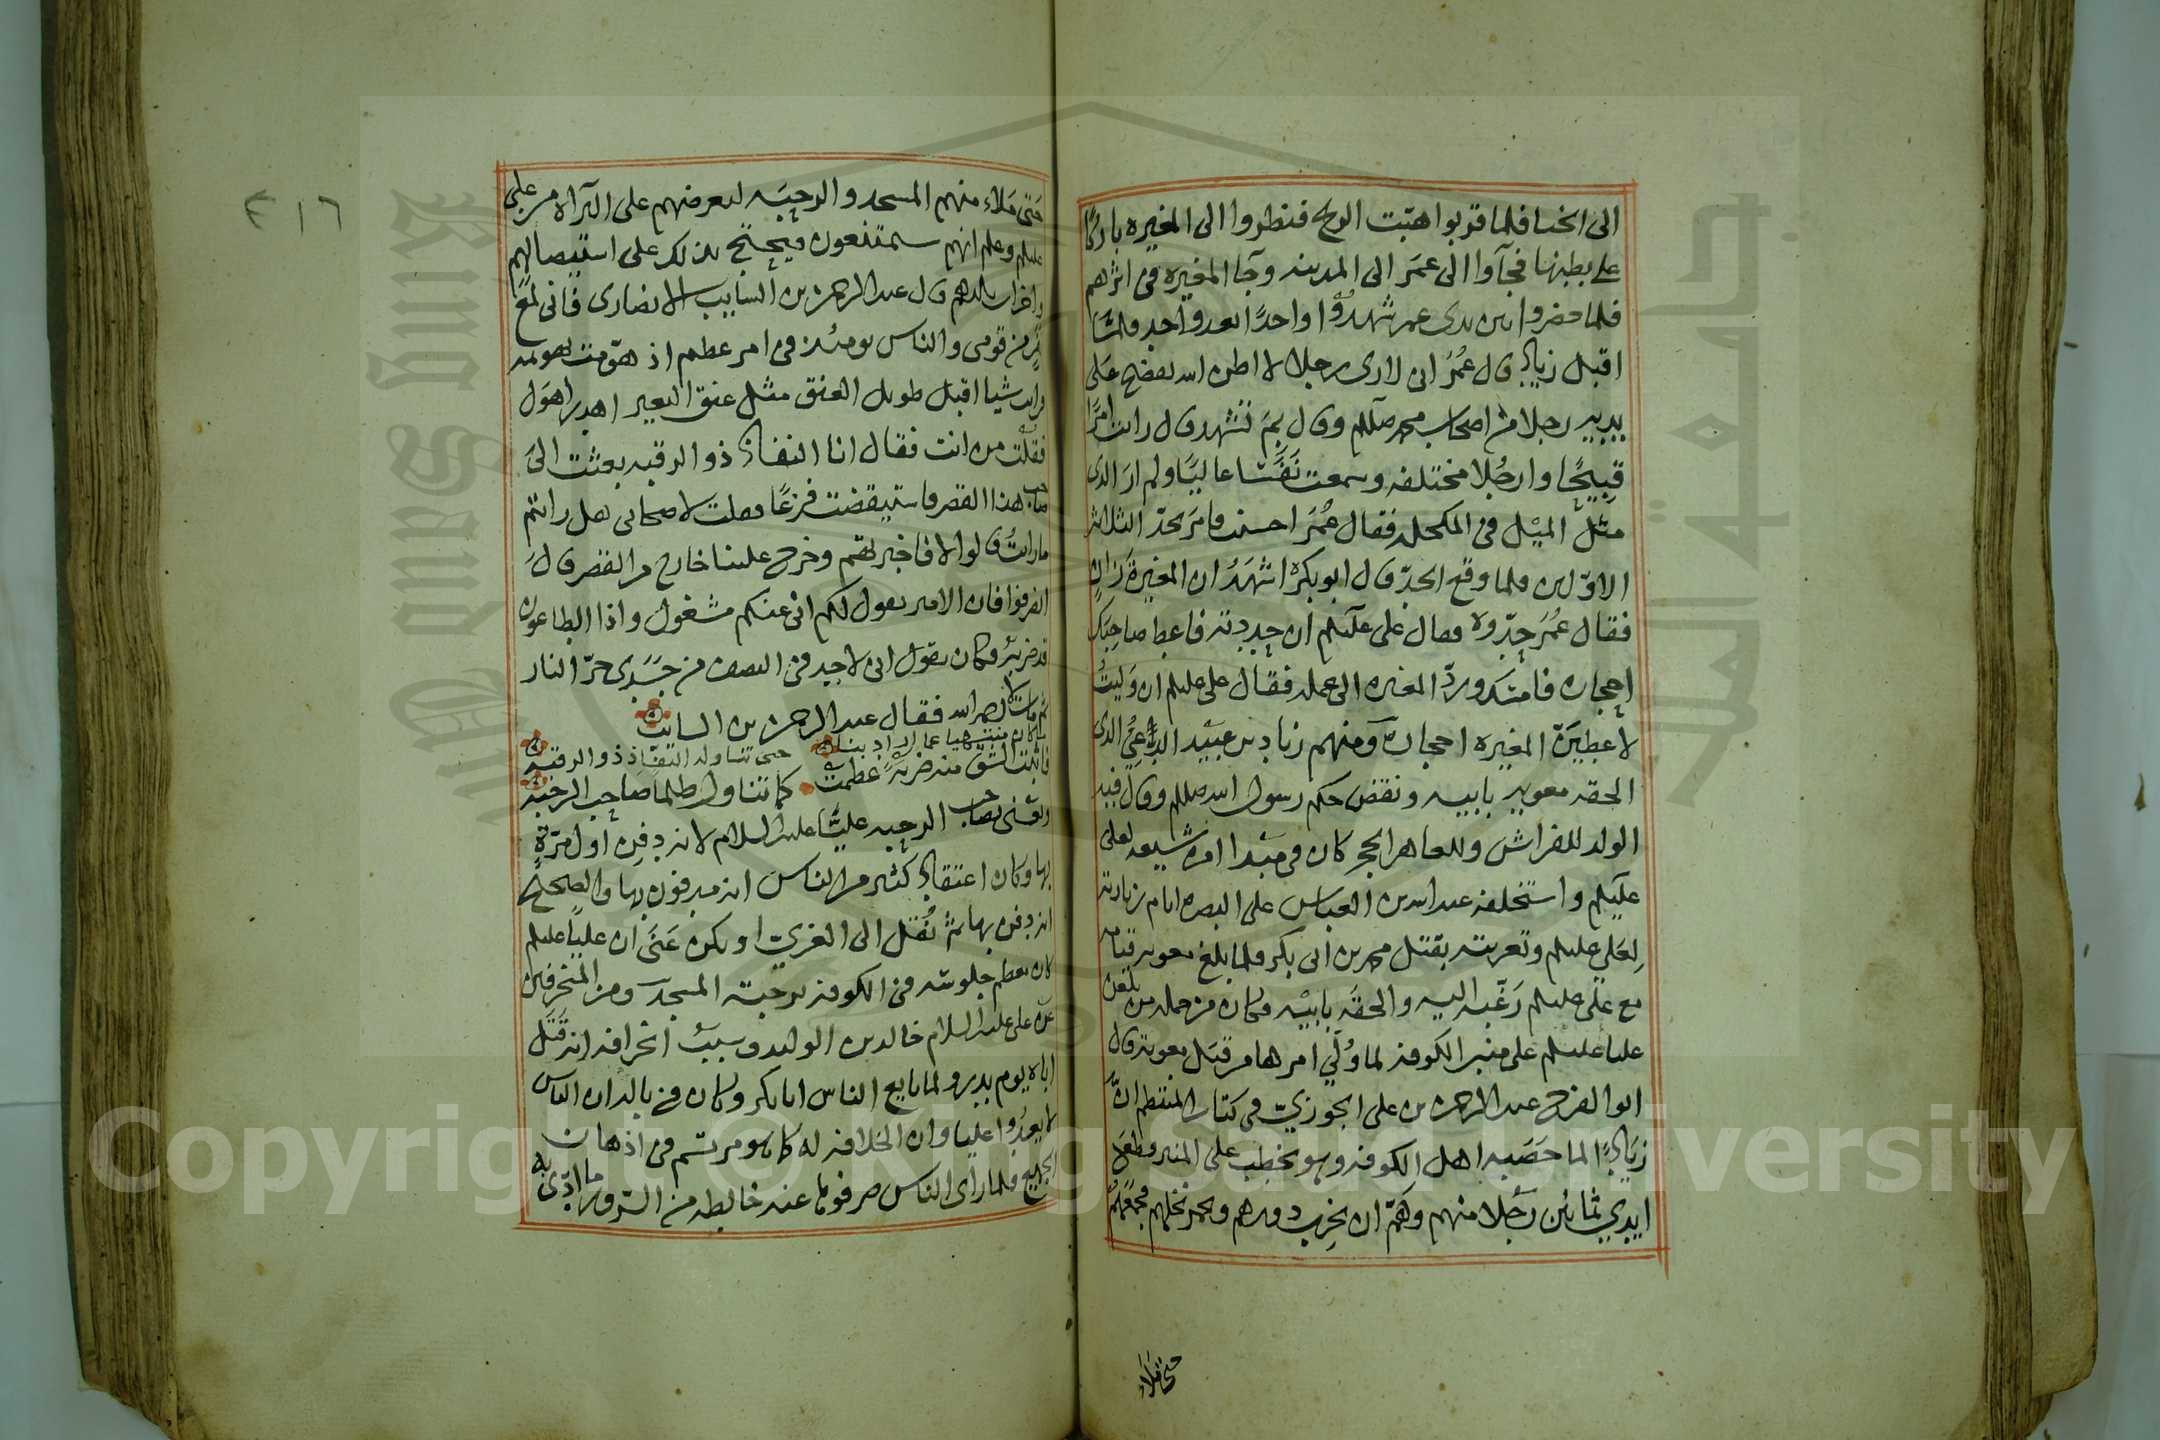 الى الخبا فلما قربوا هبّت الريح فنظروا الى المغيره باركا
على بطنها فجآوا الى عمَر الى المدينه وجآ المغيره فى اثرهم
فلما حضروا بين يدى عمر شهدوا واحدًا بعد واحد فلمّا
اقبل زيادٌ قال عُمَرُ انى لارى رجلا لا اظن الله يفضح عَلى
يديه رجلا من اصحاب محمد صلعم وقال بِمَ تشهد قال رايت امرًا
قبيحًا وارجُلا مختلفه وسمعت نَفَسًا عاليًا ولم ارَ الذى
مثل الميْل فى المكحله فقال عُمَر احسنت وامَر بحدّ الثلاثه
الاوّلين فلما وقع الحدّ قال ابو بكرَة اشهَدُ ان المغيرَة زانٍ
فقال عُمَر حِدّوه فقال على عليلم ان حددته فاعط صاحبك
احجاره فامسَك وردّ المغيره الى عمله فقال على عليلم ان وَليتُ
لاعطيَنّ المغيره احجارهُ ومنهم زياد بن عبيد الدّعىّ الذى
الحقه معويه بابيه ونقض حكم رسول الله صلعم وقال فيه
الولد للفراش وللعاهر الحجر كان فى مبدا امره شيعه لعلى
عليلم واستخلفه عبد الله بن العباس على البصره ايام زيارته
لِعَلى عليلم وتعزيته بقتل محمد بن ابى بكر فلما بلغ معويه قيامه
مع علّى عليلم رَغّبه اليه والحقَه بابيْه وكان من جمله من يلعن
عليا عليلم على منبر الكوفه لما وُلّي امرها من قبَل معويه قال
ابو الفرج عبد الرحمن بن على الجوزيّ فى كتاب المنتظم انّ
زيادًا لما حَصَبه اهل الكوفه وهو يخطب على المنبر قطعَ
ايدي ثمانين رَجُلا منهم وهَمّ ان يخرب دورهم ويجمر نخلهم فجمعَهُم
حتى مَلاء
٣١٦
حتى مَلاء منهم المسجد والرحبَه ليعرضهم على البرآه من على
عليلم وعلم انهم سيمتنعون فيحتج بذلك على استيصالهم
واخراب بلدهم قال عبد الرحمن بن السايب الانصارى فانى لمَعَ
نفرٍ من قومى والناس يومئذ فى امر عظيم اذ هوّمت تهويمه
فرايت شيا اقبل طويل العنق مثل عنق البعير اهدر اهدَل
فقلت من انت فقال انا النقادُ ذو الرقبه بعثت الىَ
صاحب هذا القصر فاستيقضت فزعًا فقلت لاصحابى هل رايتم
ما رايتُ قالوا لا فاخبرتهم وخرج علينا خارج من القصر قالَ
انصرفوا فان الامير يقول لكم انى عنكم مشغول واذا الطاعون
قد ضربَهُ فكان يقول انى لاجد فى النصف من جَسَدى حرّ النار
ثم مات فقال عبد الرحمن بن السائب
ما كان منتهيا عما اراد بنا حتى تناوله النقّاد ذو الرقبه
فاثبت الشق منه ضربةً عظمت كما تناول ظلمًا صاحب الرحبه
يعنى بصاحب الرحبه عليًّا عليه السلام لانه دفِن اول مرّةٍ
بها وكان اعتقادُ كثير من الناس انه مدفون بها والصحيح
انه دفن بها ثم نُقل الى الغريّ او يكون عَنَى ان عليًا عليلم
كان معظم جلوسه فى الكوفه برحبة المسجد ومن المنحرفين
عن على عليه السلام خالد بن الوليد وسببُ انحرافه انه قَتَل
اباه يوم بدر ولما بايع الناس ابا بكر وكان فى بالهِ ان الناس
لا يعدُوا عليا وان الخلافه له كما هو مرتسم فى اذهان
الجميع فلما راى الناس صرفوها عنه خالطه من السّرور ما ادّى به